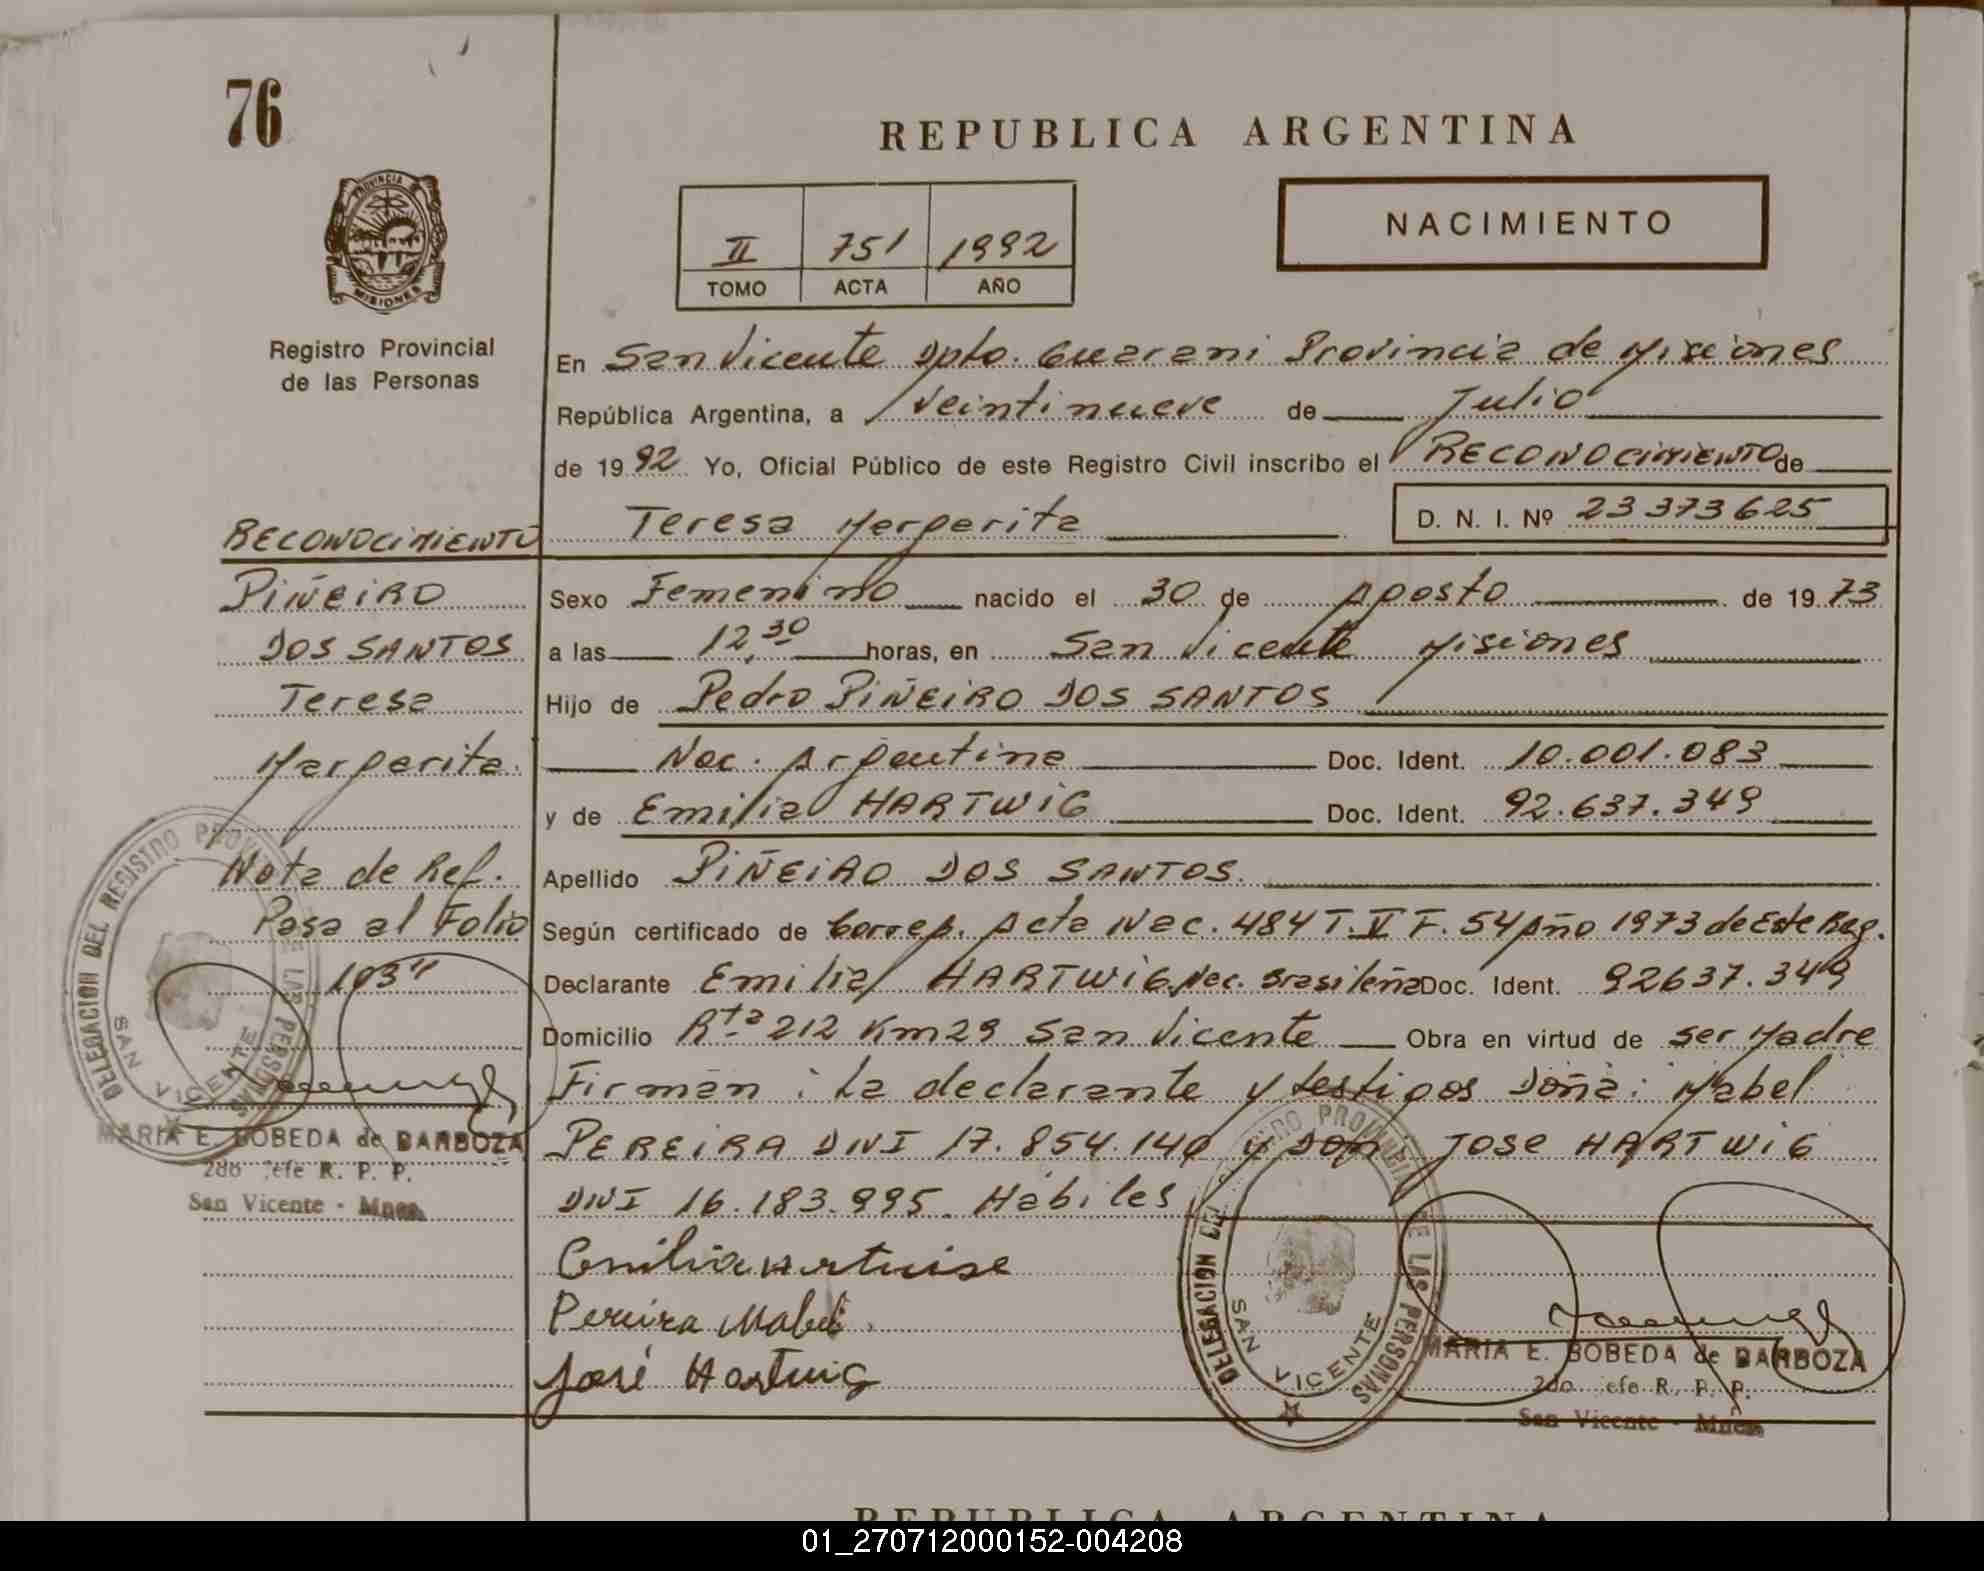 76
REPUBLICA ARGENTINA
PROVINCIA DE
MISIONES
Registro Provincial
de las Personas
II 751 1992
TOMO ACTA AÑO
NACIMIENTO
En San Vicente Dpto. Guarani Provincia de Misiones
República Argentina, a Veintinueve de Julio
de 1992 Yo, Oficial Público de este Registro Civil inscribo el RECONOCIMIENTO de
Teresa Margarita D. N. I. Nº 23373625
Sexo Femenino nacido el 30 de Agosto de 1973
a las 12,30 horas, en San Vicente Misiones
Hijo de Pedro PIÑEIRO DOS SANTOS
Nac. Argentina Doc. Ident. 10.001.083
y de Emilia HARTWIG Doc. Ident. 92.637.349
Apellido PIÑEIRO DOS SANTOS.
Según certificado de Corresp. Acta Nac. 484 T. V F. 54 Año 1973 de Este Reg.
Declarante Emilia HARTWIG. Nac. Brasileña Doc. Ident. 92637.349
Domicilio Rta 212 Km 29 San Vicente Obra en virtud de ser Madre
Firman: La declarante y testigos Doña: Mabel
PEREIRA DNI 17.854.140 y Don JOSE HARTWIG
DNI 16.183.995. Hábiles
Pereira Mabel
José Hartwig
DELEGACION DEL REGISTRO PROVINCIAL DE LAS PERSONAS
SAN VICENTE
MARIA E. BOBEDA de BARBOZA
2do Jefe R. P. P.
San Vicente - Mnes.
RECONOCIMIENTO
PIÑEIRO
DOS SANTOS
Teresa
Margarita.
Nota de Ref.
Pasa al Folio
193"
DELEGACION DEL REGISTRO PROVINCIAL DE LAS PERSONAS
SAN VICENTE
MARIA E. BOBEDA de BARBOZA
2do Jefe R. P. P.
San Vicente - Mnes.
REPUBLICA ARGENTINA
01_270712000152-004208